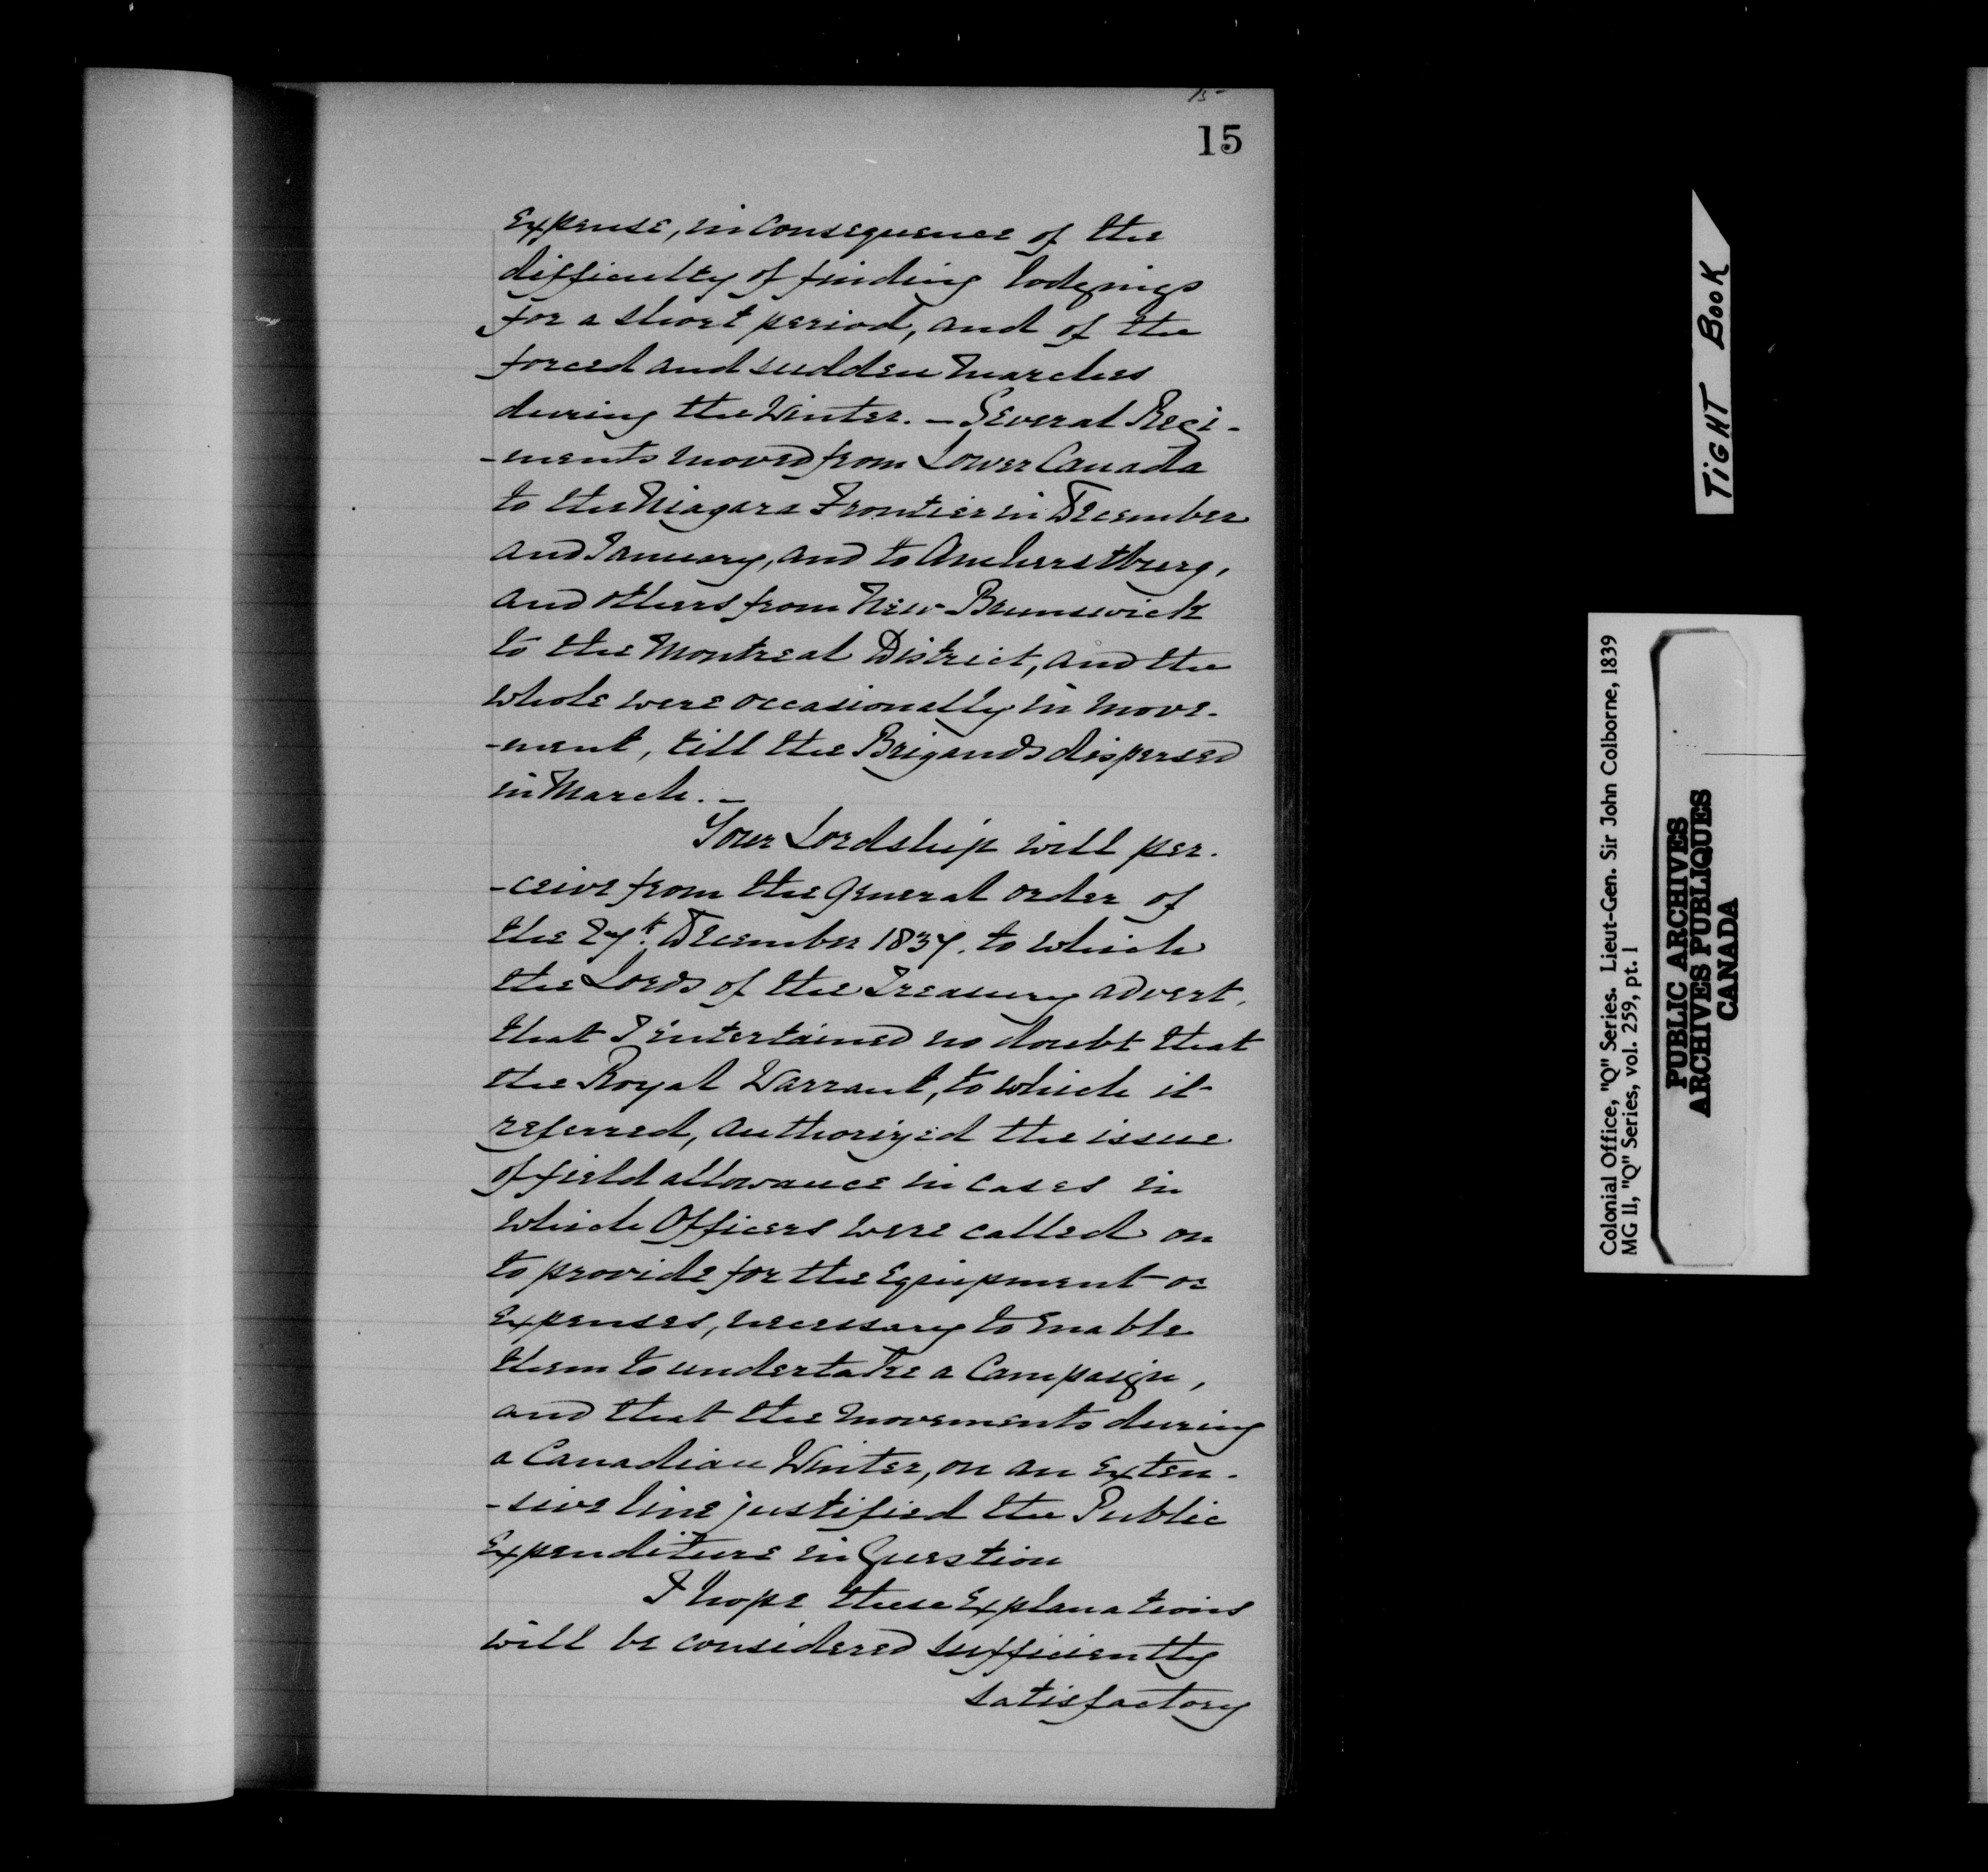 15
15
Expense, in consequence of the
difficulty of finding lodgings
for a short period, and of the
forced and sudden marches
during the Winter. – Several Regi-
-ments moved from Lower Canada
to the Niagara Frontier in December
and January, and to Amherstburg,
and others from New-Brunswick
to the Montreal District, and the
whole were occasionally in move-
-ment, till the Brigands dispersed
in March. –
Your Lordship will per-
-ceive from the General order of
the 27th. December 1837. to which
the Lords of the Treasury advert,
that I entertained no doubt that
the Royal Warrant, to which it
referred, authorized the issue
of field allowance in cases in
which Officers were called on
to provide for the Equipment or
Expenses, necessary to Enable
them to undertake a Campaign,
and that the movements during
a Canadian Winter, on an Exten-
-sive line justified the Public
Expenditure in Question
I hope these Explanations
will be considered sufficiently
satisfactory
TIGHT BOOK
Colonial Office, "Q" Series. Lieut-Gen. Sir John Colborne, 1839
MG 11, "Q" Series, vol. 259, pt. 1
PUBLIC ARCHIVES
ARCHIVES PUBLIQUES
CANADA